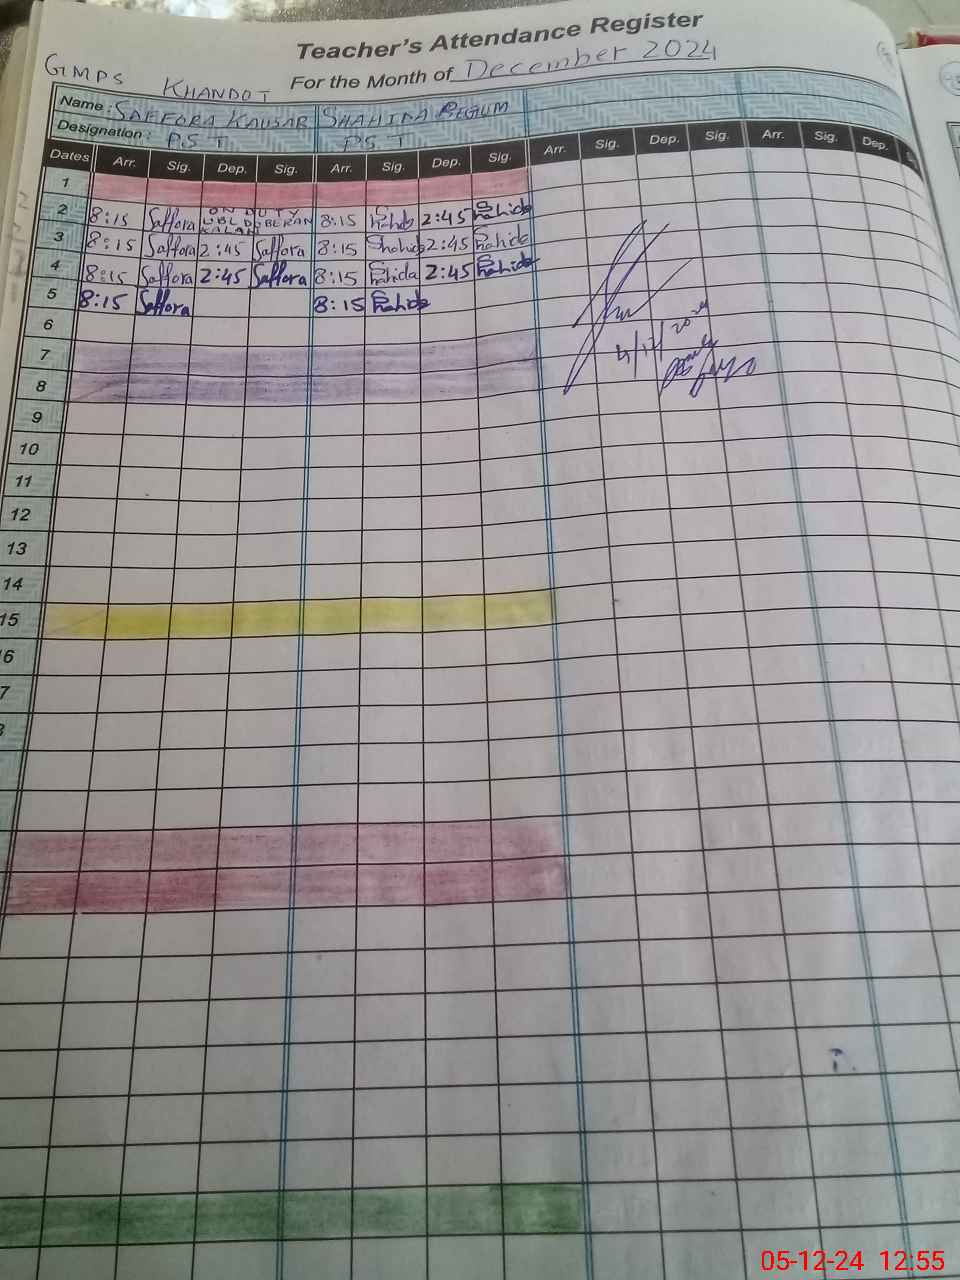 Teacher's Attendance Register
GMPS KHANDOT For the Month of December 2024
Name: SAFFORA KAUSAR SHAHIDA BEGUM
Designation: PST PST
Dates Arr. Sig. Dep. Sig. Arr. Sig. Dep. Sig. Arr. Sig. Dep. Sig. Arr. Sig. Dep.
1
2 8:15 Saffora ON DUTY KALAN 8:15 Shahida 2:45 Shahida
3 8:15 Saffora 2:45 Saffora 8:15 Shahida 2:45 Shahida
4 8:15 Saffora 2:45 Saffora 8:15 Shahida 2:45 Shahida
5 8:15 Saffora 8:15 Shahida
6
7
8
9
10
11
12
13
14
15
6
7
05-12-24 12:55